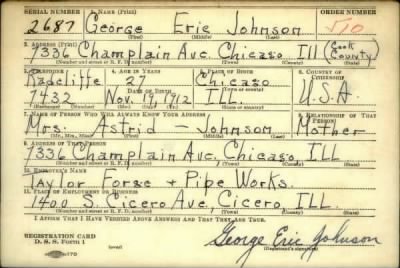 SERIAL NUMBER 1. NAME (Print) ORDER NUMBER
2687 George Eric Johnson 510
(First) (Middle) (Last)
2. ADDRESS (Print)
7336 Champlain Ave, Chicago, Ill (Cook County)
(Number and street or R. F. D. number) (Town) (County) (State)
3. TELEPHONE 4. AGE IN YEARS 5. PLACE OF BIRTH 6. COUNTRY OF CITIZENSHIP
Radcliffe 27 Chicago
DATE OF BIRTH (Town or county)
7432 Nov. 19, 1912 ILL. U.S.A.
(Exchange) (Number) (Mo.) (Day) (Yr.) (State or country)
7. NAME OF PERSON WHO WILL ALWAYS KNOW YOUR ADDRESS 8. RELATIONSHIP OF THAT PERSON
Mrs. Astrid — Johnson Mother
(Mr., Mrs., Miss) (First) (Middle) (Last)
9. ADDRESS OF THAT PERSON
7336 Champlain Ave, Chicago, ILL
(Number and street or R. F. D. number) (Town) (County) (State)
10. EMPLOYER'S NAME
Taylor Forge + Pipe Works.
11. PLACE OF EMPLOYMENT OR BUSINESS
1400 S. Cicero Ave, Cicero, ILL.
(Number and street or R. F. D. number) (Town) (County) (State)
I AFFIRM THAT I HAVE VERIFIED ABOVE ANSWERS AND THAT THEY ARE TRUE.
REGISTRATION CARD
D. S. S. Form 1 George Eric Johnson
(Registrant's signature)